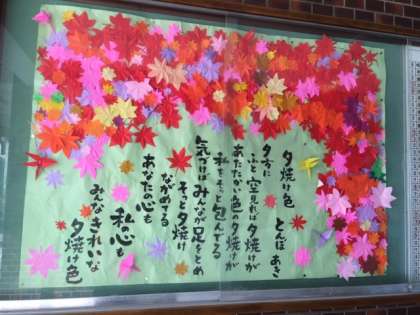 夕焼け色
とんぼ あき
夕方に
ふと 空見れば 夕焼けが
あたたかい色の夕焼けが
私をそっと包んでる
気づけばみんなが足をとめ
そっと夕焼け
ながめてる
あなたの心も
私の心も
みんなきれいな
夕焼け色